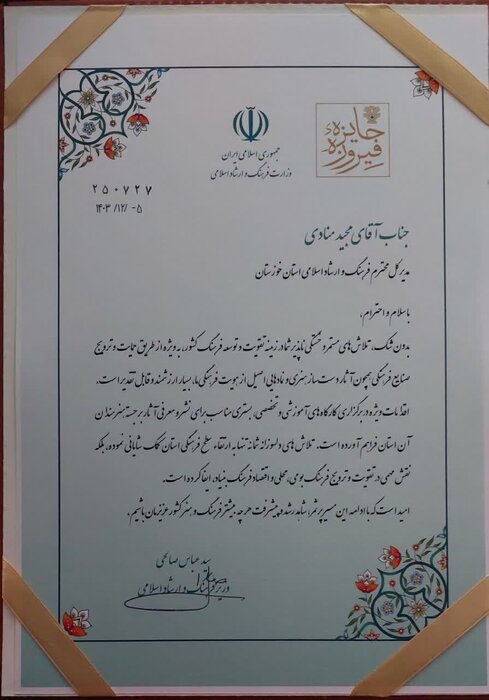 جایزهٔ
فیروزه
جمهوری اسلامی ایران
وزارت فرهنگ و ارشاد اسلامی
۲۵۰۷۲۷
۱۴۰۳/۱۲/-۵
جناب آقای مجید منادی
مدیرکل محترم فرهنگ و ارشاد اسلامی استان خوزستان
باسلام و احترام،
بدون شک، تلاش‌های مستمر و خستگی ناپذیر شما در زمینه تقویت و توسعه فرهنگ کشور، به ویژه از طریق حمایت و ترویج
صنایع فرهنگی همچون آثار دست‌ساز هنری و نمادهایی اصیل از هویت فرهنگی ما، بسیار ارزشمند و قابل تقدیر است.
اقدامات ویژه در برگزاری کارگاه های آموزشی و تخصصی، بستری مناسب برای نشر و معرفی آثار برجسته هنرمندان
آن استان فراهم آورده است. تلاش های دلسوزانه شما نه تنها به ارتقاء سطح فرهنگی استان کمک شایانی نموده، بلکه
نقش مهمی در تقویت و ترویج فرهنگ بومی، محلی و اقتصاد فرهنگ بنیاد، ایفا کرده است.
امید است که با ادامه این مسیر پرثمر، شاهد رشد و پیشرفت هرچه بیشتر فرهنگ و هنر کشور عزیزمان باشیم.
سید عباس صالحی
وزیر فرهنگ و ارشاد اسلامی